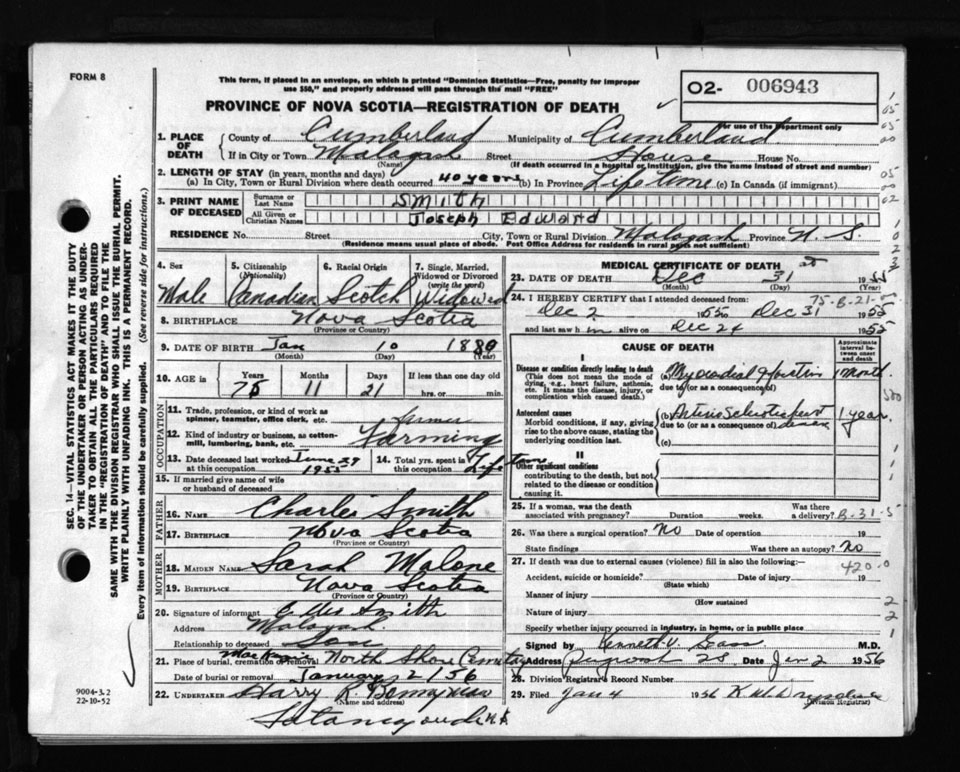 FORM 8
This form, if placed in an envelope, on which is printed "Dominion Statistics—Free, penalty for improper
use $50," and properly addressed will pass through the mail "FREE"
PROVINCE OF NOVA SCOTIA—REGISTRATION OF DEATH
02- 006943
For use of the Department only
1. PLACE OF DEATH County of Cumberland Municipality of Cumberland
If in City or Town Malagash Street House House No.
(Name) (If death occurred in a hospital or institution, give the name instead of street and number)
2. LENGTH OF STAY (in years, months and days)
(a) In City, Town or Rural Division where death occurred 40 years (b) In Province Lifetime (c) In Canada (if immigrant)
3. PRINT NAME OF DECEASED Surname or Last Name SMITH
All Given or Christian Names Joseph Edward
RESIDENCE No. Street City, Town or Rural Division Malagash Province N. S.
(Residence means usual place of abode. Post Office Address for residents in rural parts not sufficient)
4. Sex Male
5. Citizenship (Nationality) Canadian
6. Racial Origin Scotch
7. Single, Married, Widowed or Divorced (write the word) Widowed
8. BIRTHPLACE Nova Scotia
(Province or Country)
9. DATE OF BIRTH Jan 10 1880
(Month) (Day) (Year)
10. AGE in Years Months Days If less than one day old
75 11 21 hrs. or min.
OCCUPATION
11. Trade, profession, or kind of work as spinner, teamster, office clerk, etc. farmer
12. Kind of industry or business, as cotton-mill, lumbering, bank, etc. Farming
13. Date deceased last worked at this occupation June 29 1955
14. Total yrs. spent in this occupation
15. If married give name of wife or husband of deceased
FATHER
16. NAME Charles Smith
17. BIRTHPLACE Nova Scotia
(Province or Country)
MOTHER
18. MAIDEN NAME Sarah Malone
19. BIRTHPLACE Nova Scotia
(Province or Country)
20. Signature of informant Smith
Address Malagash
Relationship to deceased Son
21. Place of burial, cremation or removal North Shore Cemetary
Date of burial or removal January 2/56
22. UNDERTAKER Harry R.
(Name and address)
MEDICAL CERTIFICATE OF DEATH
23. DATE OF DEATH Dec 31st 1955
(Month) (Day)
24. I HEREBY CERTIFY that I attended deceased from:
75-B-21-
Dec 2 1955 Dec 31 1955
and last saw h m alive on Dec 24 1955
CAUSE OF DEATH
Approximate interval between onset and death
I
Disease or condition directly leading to death
(This does not mean the mode of dying, e.g., heart failure, asthenia, etc. It means the disease, injury, or complication which caused death.)
(a) Myocardial 1 Month
due to (or as a consequence of)
Antecedent causes
Morbid conditions, if any, giving rise to the above cause, stating the underlying condition last.
(b) 1 year
due to (or as a consequence of)
(c)
II
Other significant conditions
contributing to the death, but not related to the disease or condition causing it.
25. If a woman, was the death associated with pregnancy? Duration weeks. Was there a delivery?
B-31-5
26. Was there a surgical operation? No Date of operation 19
State findings Was there an autopsy? No
27. If death was due to external causes (violence) fill in also the following:
420.0
Accident, suicide or homicide? Date of injury 19
(State which)
Manner of injury
(How sustained
Nature of injury
Specify whether injury occurred in industry, in home, or in public place
Signed by Kenneth V. Gass M.D.
Address Date Jan 2 1956
28. Division Registrar's Record Number
29. Filed Jan 4 1956
(Division Registrar)
SEC. 14—VITAL STATISTICS ACT MAKES IT THE DUTY
OF THE UNDERTAKER OR PERSON ACTING AS UNDER-
TAKER TO OBTAIN ALL THE PARTICULARS REQUIRED
IN THE "REGISTRATION OF DEATH" AND TO FILE THE
SAME WITH THE DIVISION REGISTRAR WHO SHALL ISSUE THE BURIAL PERMIT.
WRITE PLAINLY WITH UNFADING INK. THIS IS A PERMANENT RECORD.
Every item of information should be carefully supplied. (See reverse side for instructions.)
9004-3.2
22-10-52